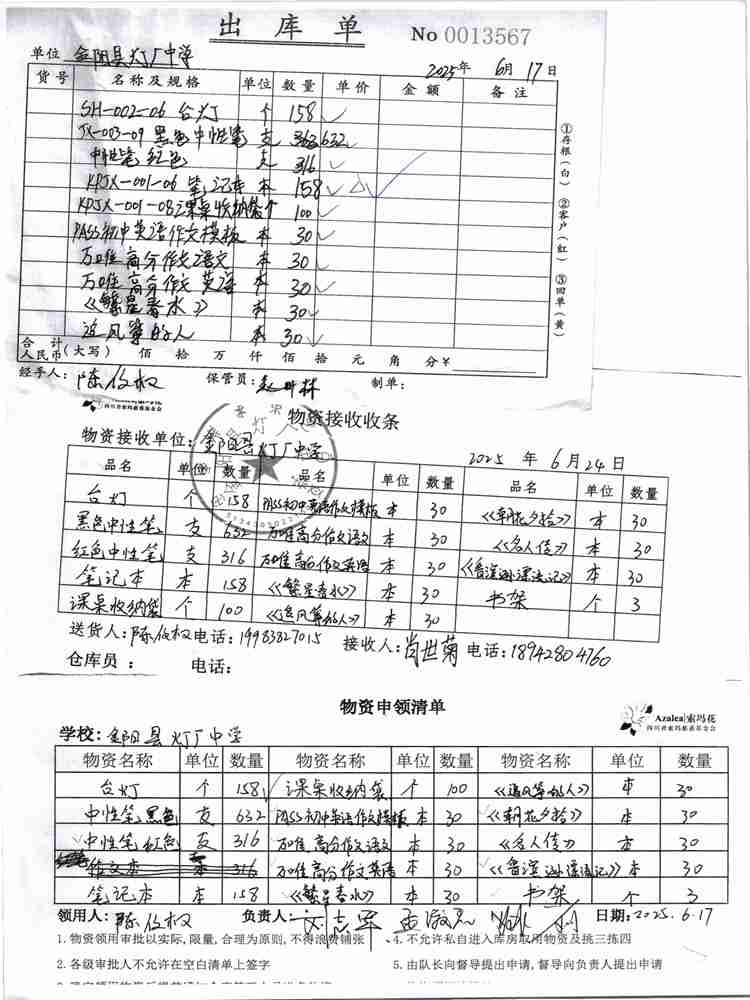 出 库 单 No 0013567
单位 金阳县灯厂中学 2025年 6月 17日
货号 名称及规格 单位 数量 单价 金额 备注
SH-002-06 台灯 个 158
JX-003-09 黑色中性笔 支 632
中性笔 红色 支 316
KPJX-001-06 笔记本 本 158
KPJX-001-08 课桌收纳袋 个 100
PASS初中英语作文模板 本 30
万唯高分作文语文 本 30
万唯高分作文 英语 本 30
《繁星春水》 本 30
追风筝的人 本 30
合计人民币(大写) 佰 拾 万 仟 佰 拾 元 角 分¥
①存根(白) ②客户(红) ③回单(黄)
经手人: 陈伍权 保管员: 制单:
索玛花
四川省索玛慈善基金会
物资接收收条
物资接收单位: 金阳县灯厂中学 2025 年 6 月 24 日
品名 单位 数量 品名 单位 数量 品名 单位 数量
台灯 个 158 PASS初中英语作文模板 本 30 《朝花夕拾》 本 30
黑色中性笔 支 632 万唯高分作文语文 本 30 《名人传》 本 30
红色中性笔 支 316 万唯高分作文英语 本 30 《鲁滨逊漂流记》 本 30
笔记本 本 158 《繁星春水》 本 30 书架 个 3
课桌收纳袋 个 100 《追风筝的人》 本 30
送货人: 陈伍权 电话: 19983827015 接收人: 肖世菊 电话: 18942804760
仓库员: 电话:
物资申领清单
Azalea 索玛花
四川省索玛慈善基金会
学校: 金阳县灯厂中学
物资名称 单位 数量 物资名称 单位 数量 物资名称 单位 数量
台灯 个 158 课桌收纳袋 个 100 《追风筝的人》 本 30
中性笔 黑色 支 632 PASS初中英语作文模板 本 30 《朝花夕拾》 本 30
中性笔 红色 支 316 万唯高分作文语文 本 30 《名人传》 本 30
作文本 本 316 万唯高分作文英语 本 30 《鲁滨逊漂流记》 本 30
笔记本 本 158 《繁星春水》 本 30 书架 个 3
领用人: 陈伍权 负责人: 日期: 2025.6.17
1. 物资领用审批以实际,限量,合理为原则,不得浪费铺张 4. 不允许私自进入库房取用物资及挑三拣四
2. 各级审批人不允许在空白清单上签字 5. 由队长向督导提出申请,督导向负责人提出申请